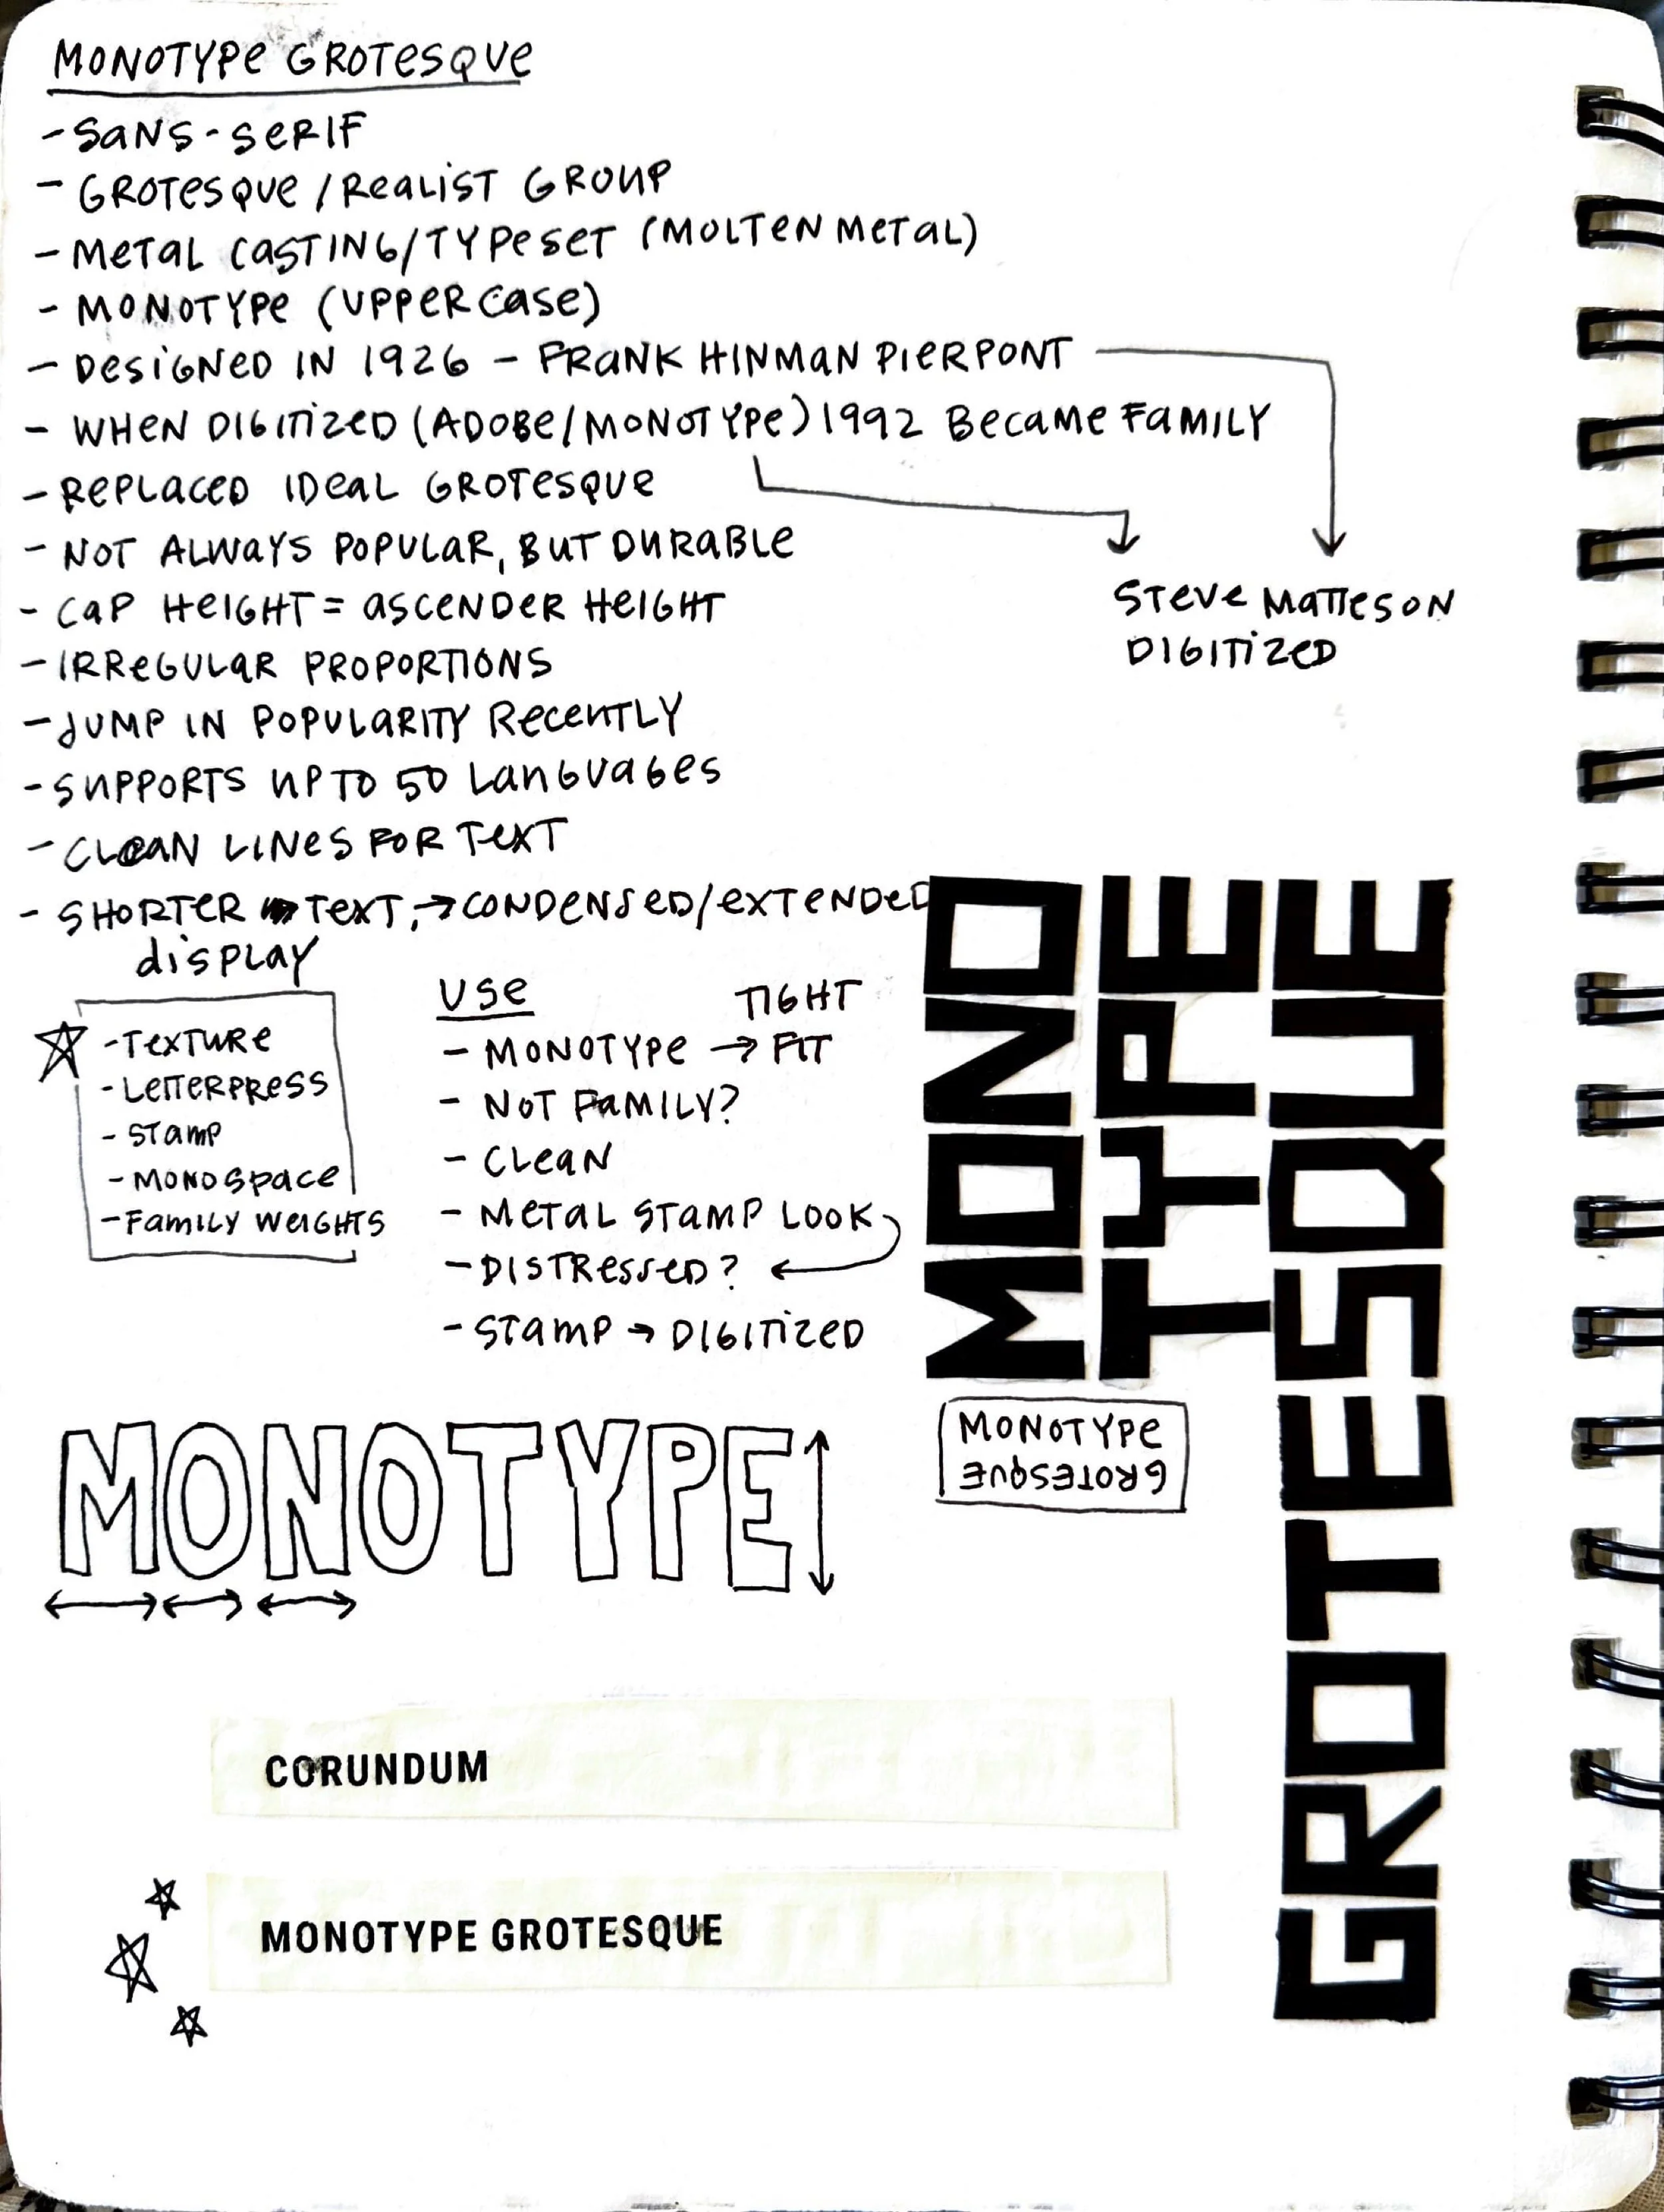 MONOTYPE GROTESQUE
- SANS-SERIF
- GROTESQUE/REALIST GROUP
- METAL CASTING/TYPESET (MOLTEN METAL)
- MONOTYPE (UPPERCASE)
- DESIGNED IN 1926 - FRANK HINMAN PIERPONT
- WHEN DIGITIZED (ADOBE/MONOTYPE) 1992 BECAME FAMILY
- REPLACED IDEAL GROTESQUE
- NOT ALWAYS POPULAR, BUT DURABLE
- CAP HEIGHT = ASCENDER HEIGHT
STEVE MATTESON
DIGITIZED
- IRREGULAR PROPORTIONS
- JUMP IN POPULARITY RECENTLY
- SUPPORTS UP TO 50 LANGUAGES
- CLEAN LINES FOR TEXT
- SHORTER TEXT, → CONDENSED/EXTENDED
display
- TEXTURE
- LETTERPRESS
- STAMP
- MONOSPACE
- FAMILY WEIGHTS
USE
TIGHT
- MONOTYPE → FIT
- NOT FAMILY?
- CLEAN
- METAL STAMP LOOK
- DISTRESSED?
- STAMP → DIGITIZED
MONO
TYPE
GROTESQUE
MONOTYPE
GROTESQUE
MONOTYPE
CORUNDUM
MONOTYPE GROTESQUE